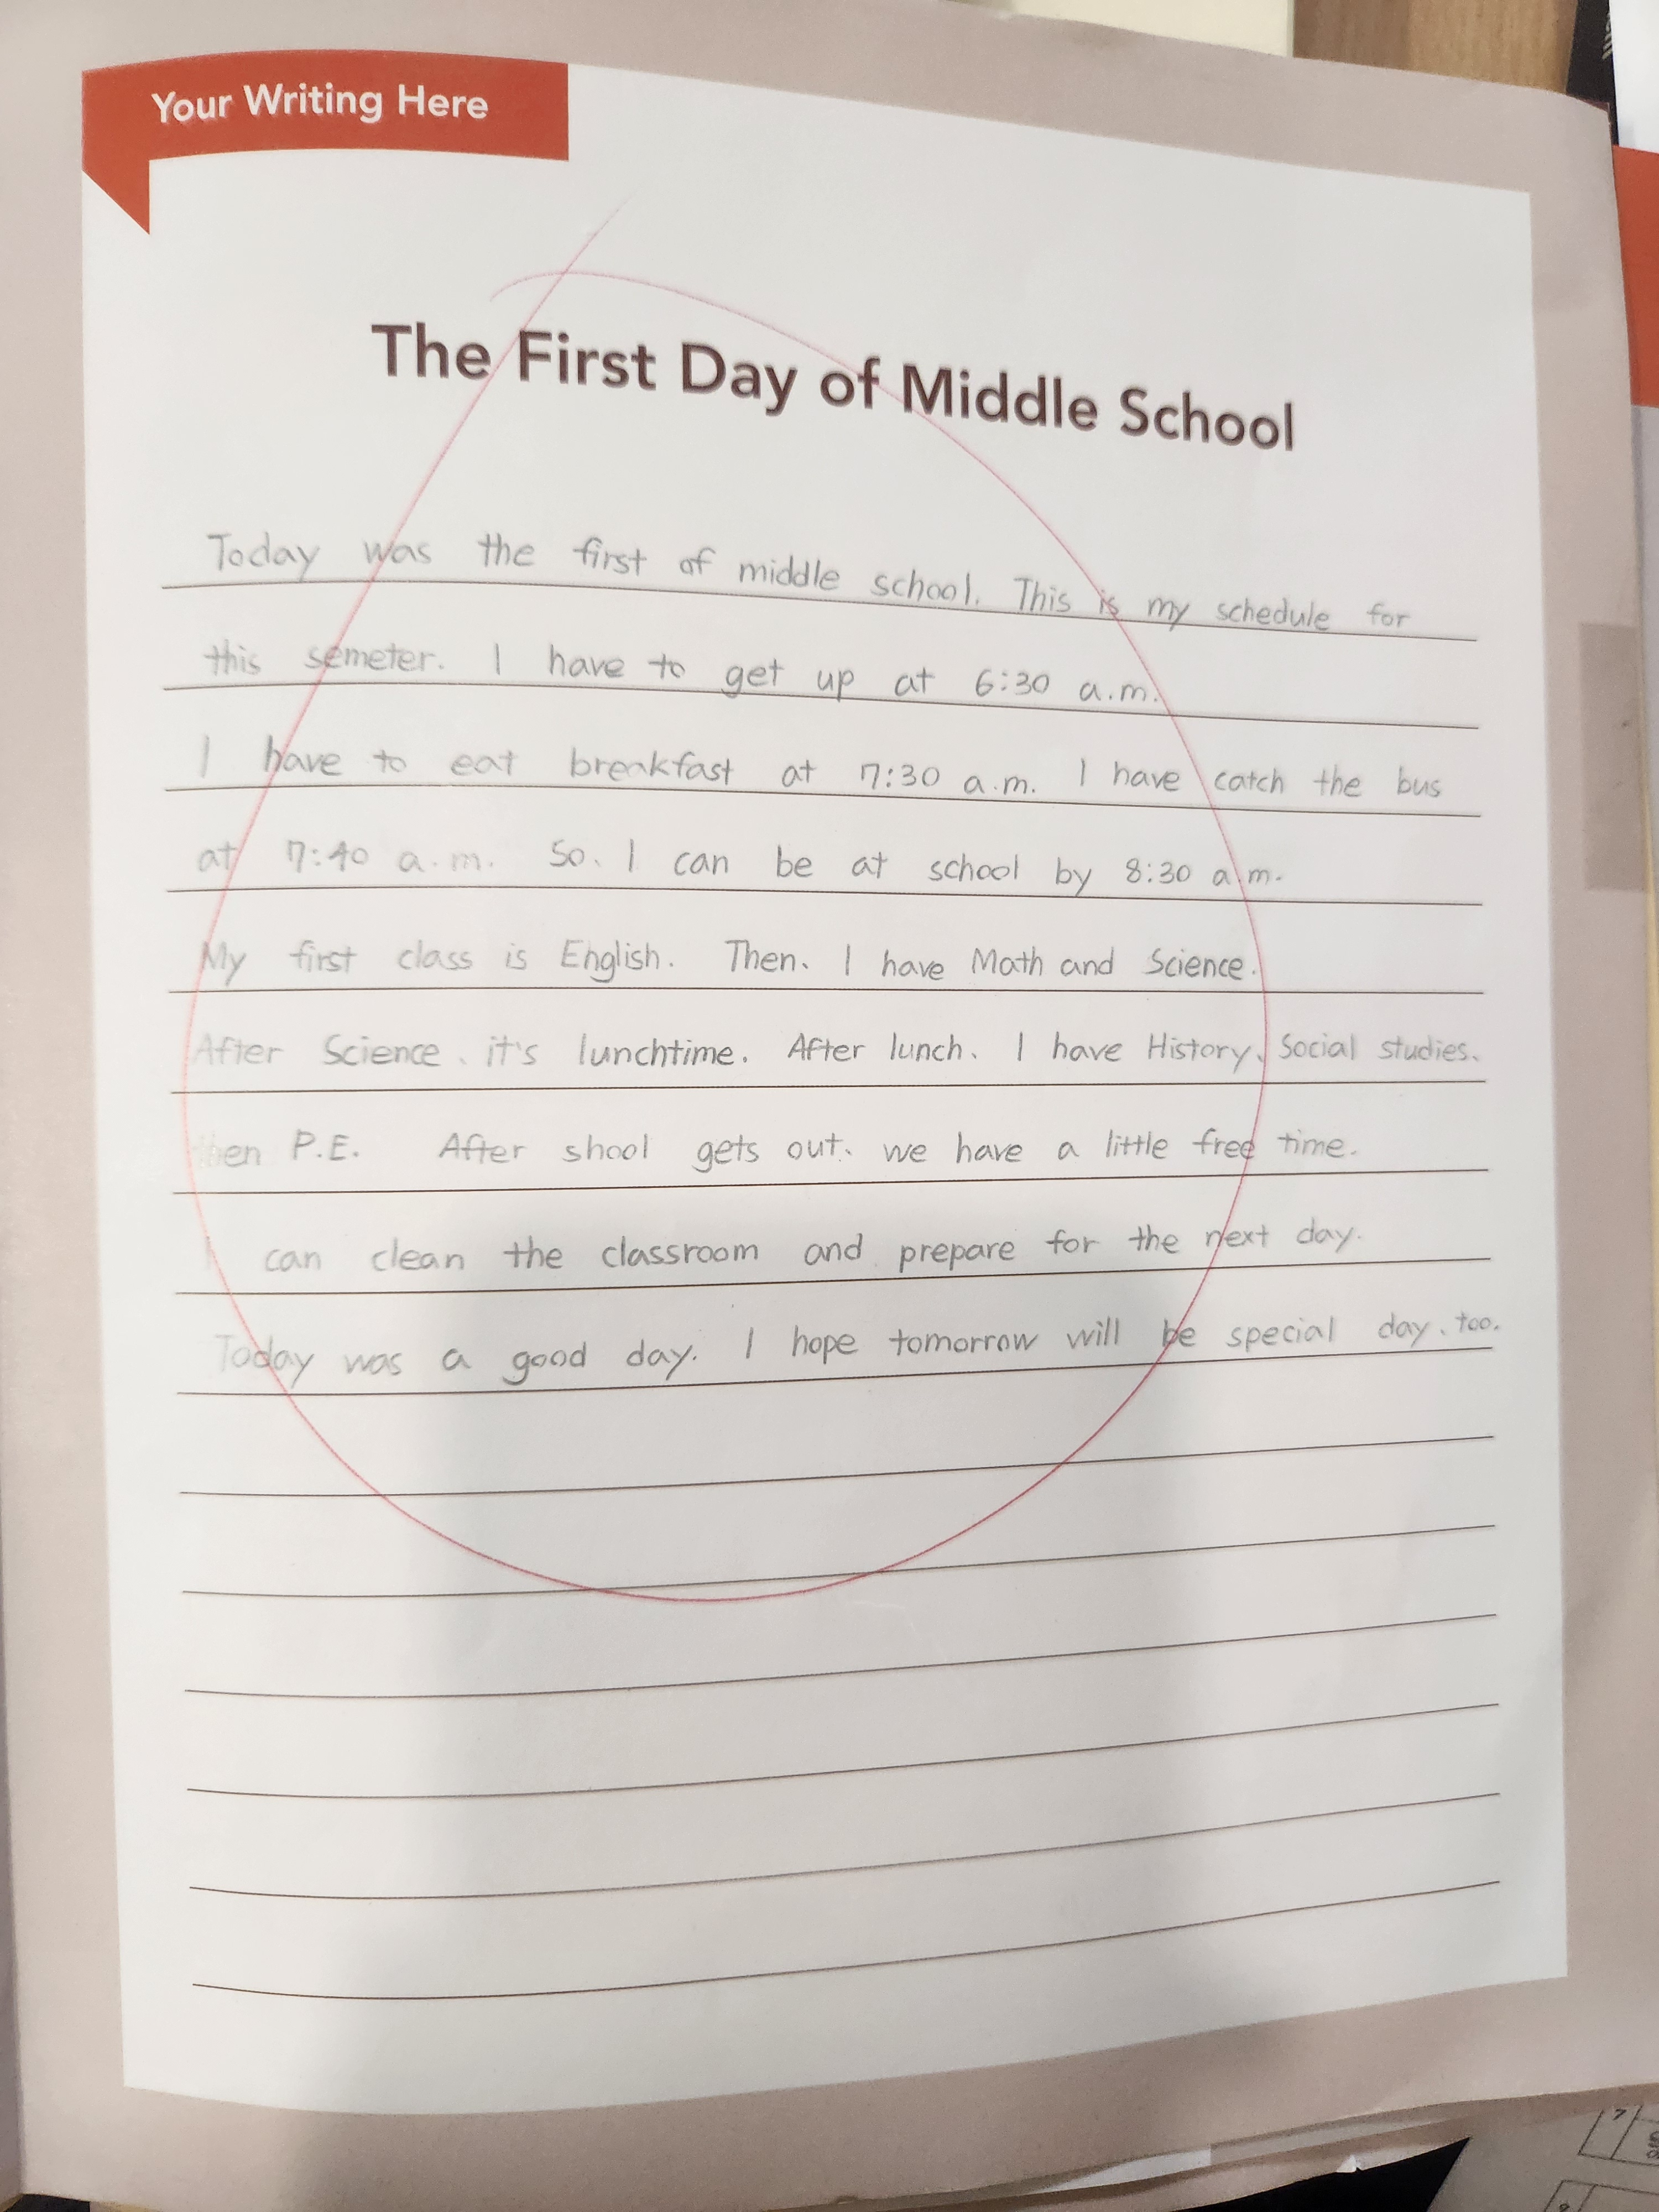 Your Writing Here
The First Day of Middle School
Today was the first of middle school. This is my schedule for
this semeter. I have to get up at 6:30 a.m.
I have to eat breakfast at 7:30 a.m. I have catch the bus
at 7:40 a.m. So, I can be at school by 8:30 a.m.
My first class is English. Then, I have Math and Science.
After Science, it's lunchtime. After lunch, I have History, Social studies,
then P.E. After shool gets out, we have a little free time.
I can clean the classroom and prepare for the next day.
Today was a good day. I hope tomorrow will be special day, too.
7